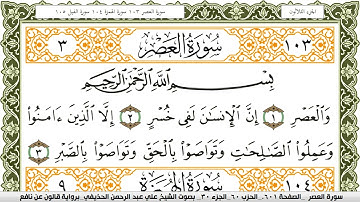 الجزء الثلاثون سورة العصر ١٠٣ سورة الهمزة ١٠٤ سورة الفيل ١٠٥
١٠٣ سُورَةُ الْعَصْرِ ٣
بِسْمِ اللَّهِ الرَّحْمَٰنِ الرَّحِيمِ
وَالْعَصْرِ ١ إِنَّ الْإِنسَٰنَ لَفِى خُسْرٍ ٢ إِلَّا الَّذِينَ ءَامَنُوا
وَعَمِلُوا الصَّٰلِحَٰتِ وَتَوَاصَوْا بِالْحَقِّ وَتَوَاصَوْا بِالصَّبْرِ ٣
١٠٤ سُورَةُ الْهُمَزَةِ ٩
سورة العصر . الصفحة ٦٠١ . الحزب ٦٠ . الجزء ٣٠ . بصوت الشيخ علي عبد الرحمن الحذيفي . برواية قالون عن نافع